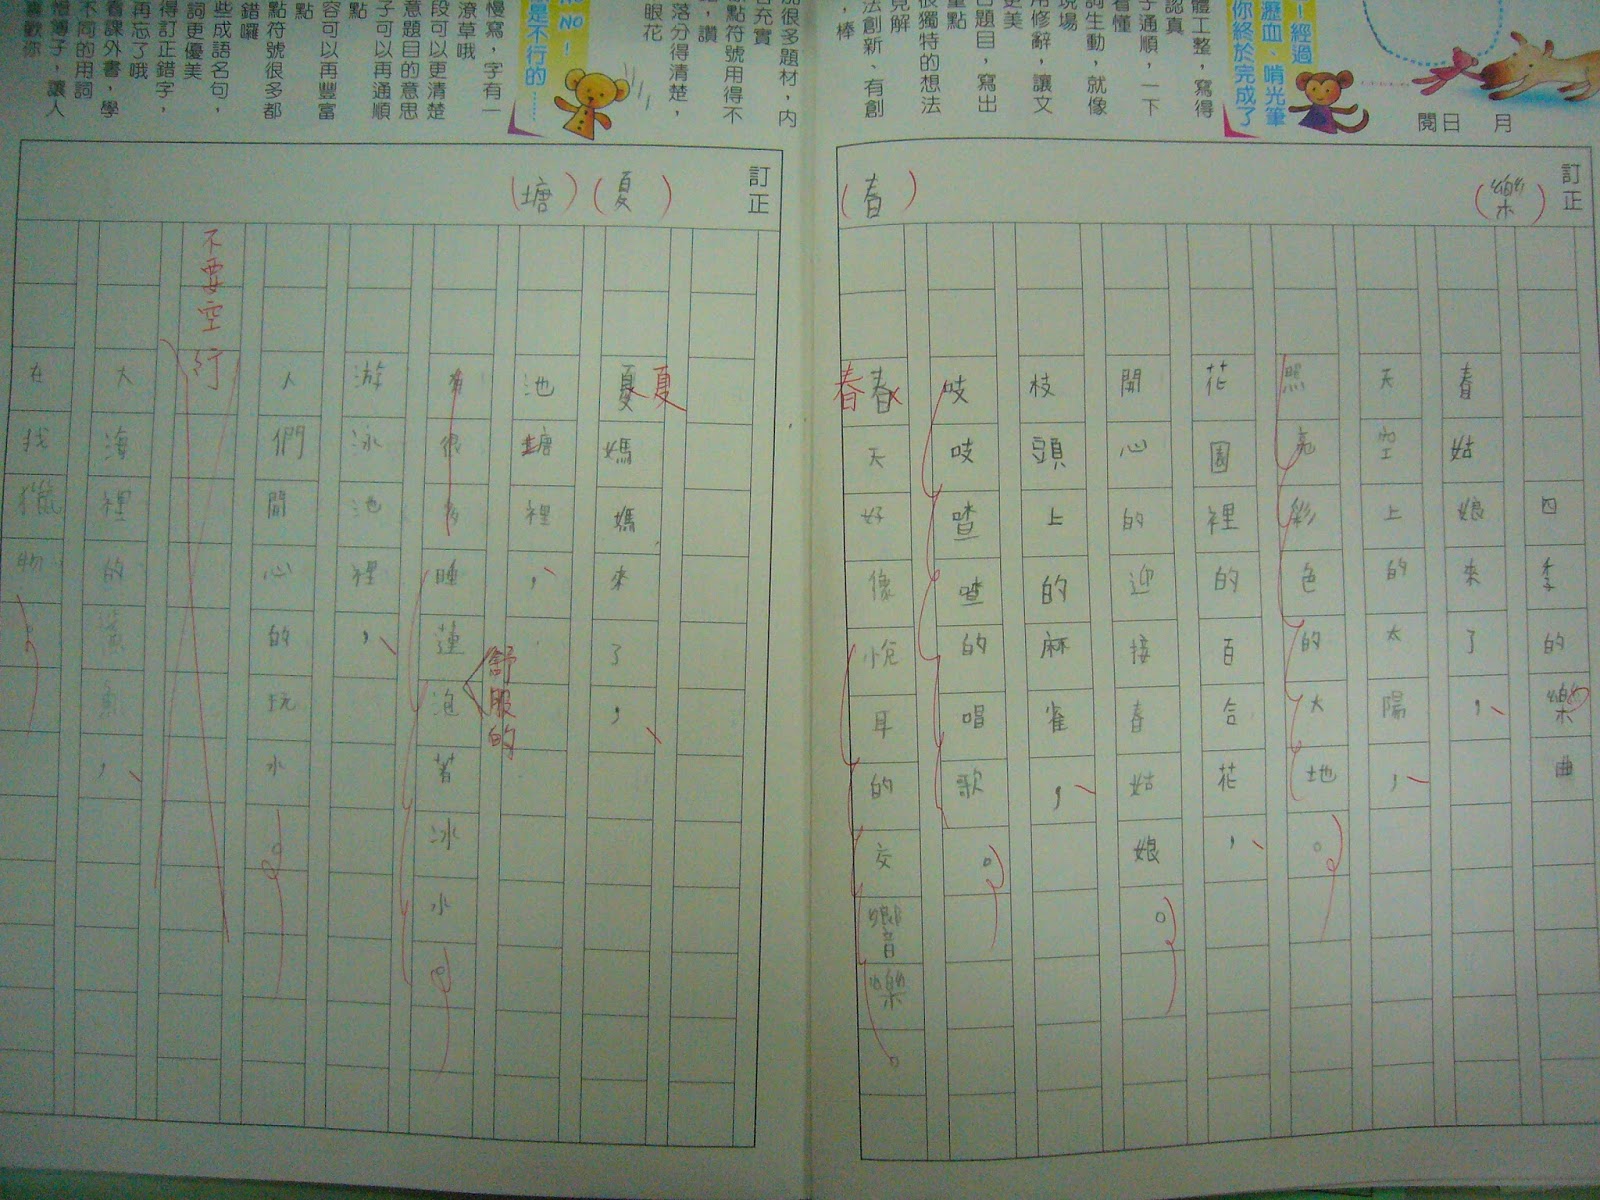 月
日
閱
經過
瀝血、啃光筆
你終於完成了
體工整，寫得
認真
子通順，一下
看懂
詞生動，就像
現場
用修辭，讓文
更美
合題目，寫出
重點
很獨特的想法
見解
法創新、有創
，棒
訂正
（樂）
（春）
四季的樂曲
春姑娘來了，
天空上的太陽，
照亮彩色的大地。
花園裡的百合花，
開心的迎接春姑娘。
枝頭上的麻雀，
吱吱喳喳的唱歌。
春天好像悅耳的交響樂。
春
加很多題材，內
容充實
標點符號用得不
，讚
落分得清楚，
眼花
NO NO！
是不行的……
慢寫，字有一
潦草哦
段可以更清楚
意題目的意思
子可以再通順
點
容可以再豐富
點
點符號很多都
錯囉
些成語名句，
詞更優美
得訂正錯字，
再忘了哦
看課外書，學
不同的用詞
惜簿子，讓人
喜歡你
訂正
（夏）
（塘）
夏媽媽來了，
夏
池塘裡，
有很多睡蓮泡著冰水。
舒服的
游泳池裡，
人們開心的玩水。
不要空行
大海裡的鯊魚，
在找獵物。